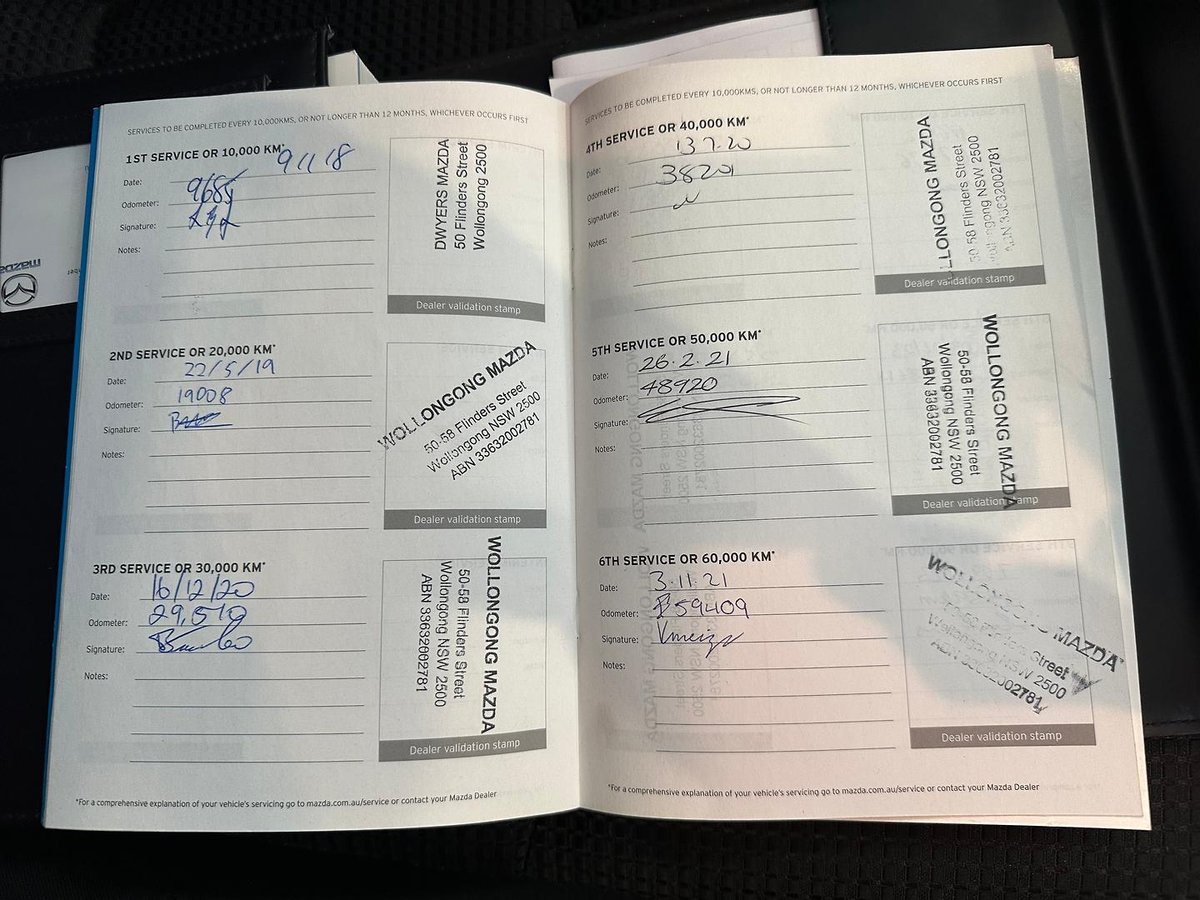 SERVICES TO BE COMPLETED EVERY 10,000KMS, OR NOT LONGER THAN 12 MONTHS, WHICHEVER OCCURS FIRST
1ST SERVICE OR 10,000 KM*
Date: 9 11 18
Odometer: 9685
Signature:
Notes:
DWYERS MAZDA
50 Flinders Street
Wollongong 2500
Dealer validation stamp
2ND SERVICE OR 20,000 KM*
Date: 22/5/19
Odometer: 19008
Signature:
Notes:
WOLLONGONG MAZDA
50-58 Flinders Street
Wollongong NSW 2500
ABN 33632002781
Dealer validation stamp
3RD SERVICE OR 30,000 KM*
Date: 16/12/20
Odometer: 29,510
Signature:
Notes:
WOLLONGONG MAZDA
50-58 Flinders Street
Wollongong NSW 2500
ABN 33632002781
Dealer validation stamp
*For a comprehensive explanation of your vehicle's servicing go to mazda.com.au/service or contact your Mazda Dealer
SERVICES TO BE COMPLETED EVERY 10,000KMS, OR NOT LONGER THAN 12 MONTHS, WHICHEVER OCCURS FIRST
4TH SERVICE OR 40,000 KM*
Date: 13.7.20
Odometer: 38201
Signature:
Notes:
LLONGONG MAZDA
50-58 Flinders Street
Wollongong NSW 2500
ABN 33632002781
Dealer validation stamp
5TH SERVICE OR 50,000 KM*
Date: 26.2.21
Odometer: 48920
Signature:
Notes:
WOLLONGONG MAZDA
50-58 Flinders Street
Wollongong NSW 2500
ABN 33632002781
Dealer validation stamp
6TH SERVICE OR 60,000 KM*
Date: 3.11.21
Odometer: 59409
Signature:
Notes:
WOLLONGONG MAZDA
50-58 Flinders Street
Wollongong NSW 2500
ABN 33632002781
Dealer validation stamp
*For a comprehensive explanation of your vehicle's servicing go to mazda.com.au/service or contact your Mazda Dealer
mazda